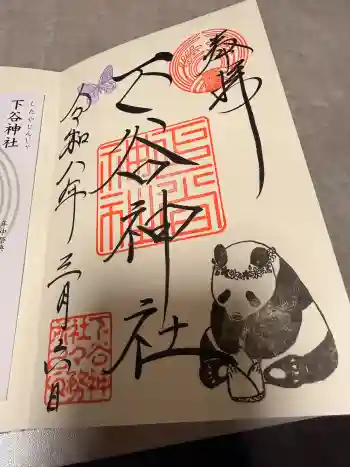 奉拝
下谷神社
令和八年三月十六日
下谷神社
下谷神
社之
したやじんじゃ
下谷神社